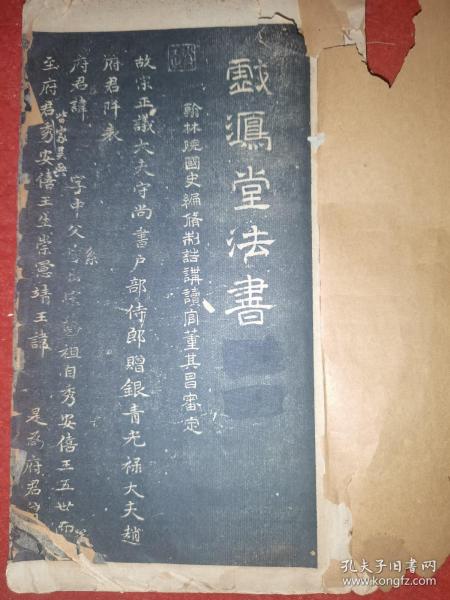 戲鴻堂法書
翰林院國史編脩制誥講讀官董其昌審定
故宋正議大夫守尚書戶部侍郎贈銀青光祿大夫趙
府君阡表
府君諱 字中父 祖自秀安僖王五世而
皆家吳興
至府君秀安僖王生崇憲靖王諱 是為府君
孔夫子旧书网
www.kongfz.com